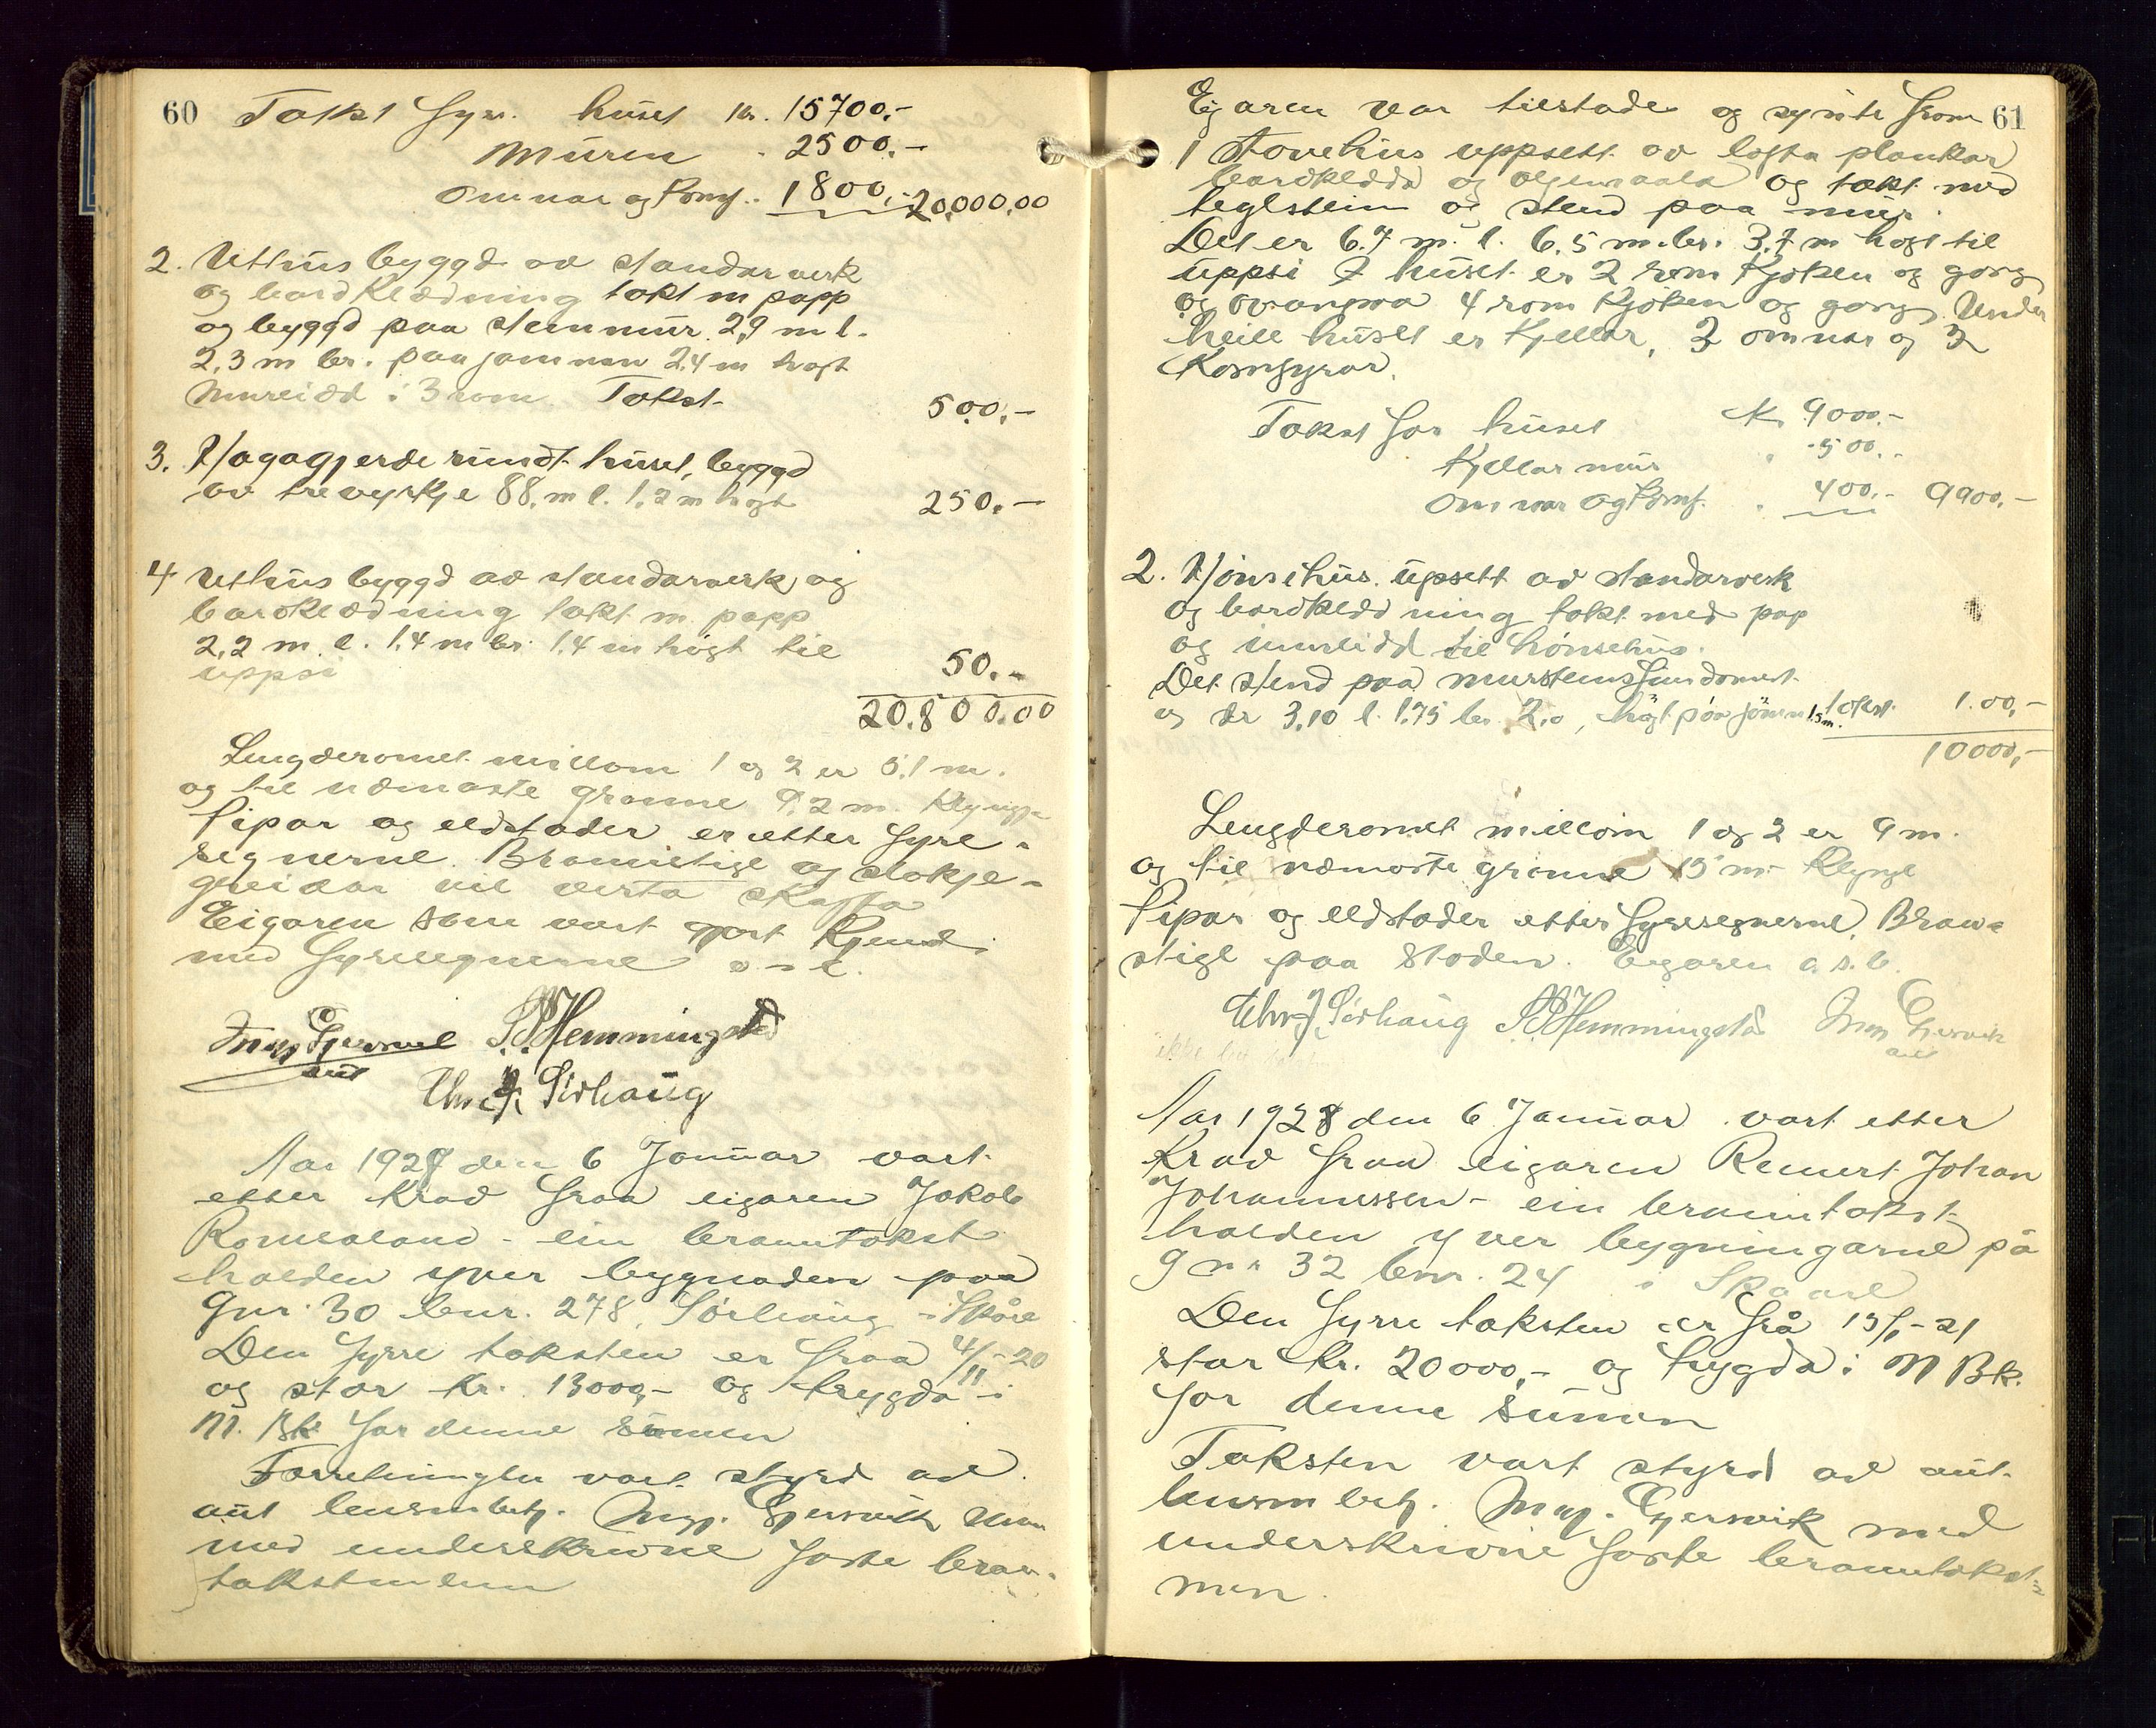 60 Takst fyr. huset kr. 15700.-
Muren - 2500.-
Omnar og komf. - 1800.- 20,000,00
2. Uthus byggd av standarverk
og bordklædning takt m papp
og byggd paa stenmur. 2,9 m l.
2,3 m br. paa jamnen 2,4 m høgt
innreidd i 3 rom Takst 500.-
3. Hagagjerde rundt huset, byggd
av trevyrkje 88. m l. 1,2 m høgt 250.-
4 Uthus byggd av standarverk og
bordklædning takt m. papp
2,2 m. l. 1,4 m br. 1,4 m høgt til
uppsi 50.-
20.800.00
Lengderomet millom 1 og 2 er 5,1 m.
og til næmaste granne 9,2 m.
Pipar og eldstader er etter fyre-
segnerne. Brannstige og slokje-
greidar vil verta skaffa
Eigaren som vart gjort kjend
med fyresegnerne
Gjersvik S. P. Hemmingstad
aut
Chr. J. Sørhaug
Aar 1928 den 6 Januar vart
etter krav fraa eigaren Jakob
Ramsaland - ein branntakst
halden yver bygnaden paa
Gnr. 30 bnr. 278, Sørhaug i Skåre
Den fyrre taksten er fraa 4/11-20
og stor kr. 13000,- og trygda i
N. Bk for denne sumen
Forretningen vart styrd av
aut lensm betj. Mag. Gjersvik
med underskrivne faste bran-
takstmenn
61
Eigaren var tilstade og synte fram
1 Stovehus uppsett av lafta plankar
bordkledd og oljemaala og takt med
teglstein og stend paa mur.
Det er 6.7 m. l. 6,5 m. br. 3.7 m høgt til
uppsi I huset er 2 rom kjøken og gang
og ovanpaa 4 rom kjøken og gang. Under
heile huset er kjellar, 3 omnar og 2
Komfyrar.
Takst for huset Kr 9000.-
Kjellar mur - 500.-
Omnar og komf. - 400.- 9900.-
2. Hønsehus. upsett av standarverk
og bordkledd ning takt med pap
og innreidd til hønsehus.
Det stend paa murstensfundament
og er 3,10 l. 1,75 br. 2,0, høgt paa jamn 1,5 m. takst. 1.00,-
10000,-
Lengderomet millom 1 og 2 er 9 m.
og til næmaste granne 15 m.
Pipar og eldstader etter fyresegnerne. Brann-
stige paa staden. Eigaren o.s.b.
Chr. J. Sørhaug S. P. Hemmingstad Gjersvik
aut
Aar 1928 den 6 Januar vart etter
Krav fraa eigaren Reinert Johan
Johannessen - ein branntakst
halden yver bygningarne på
gnr 32 bnr. 24 i Skaare
Den fyrre taksten er frå 15/1-21
stor kr. 20000,- og trygda i N Bk.
for denne sumen
Taksten vart styrd av aut.
lensm betj. Mag. Gjersvik med
underskrivne faste branntakst-
men